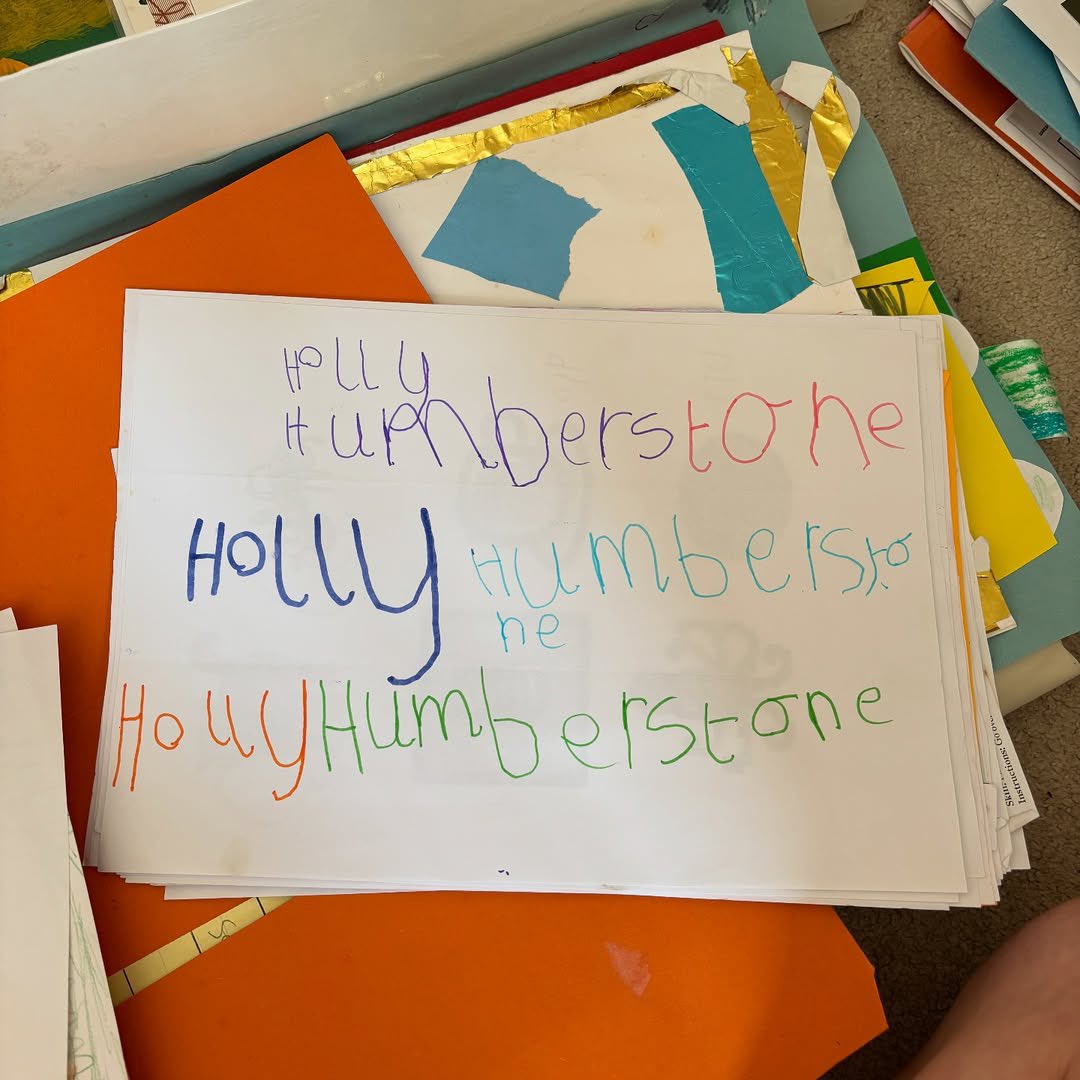 Holly
Humberstone
Holly Humbersto
ne
Holly Humberstone
Instructions: Go over